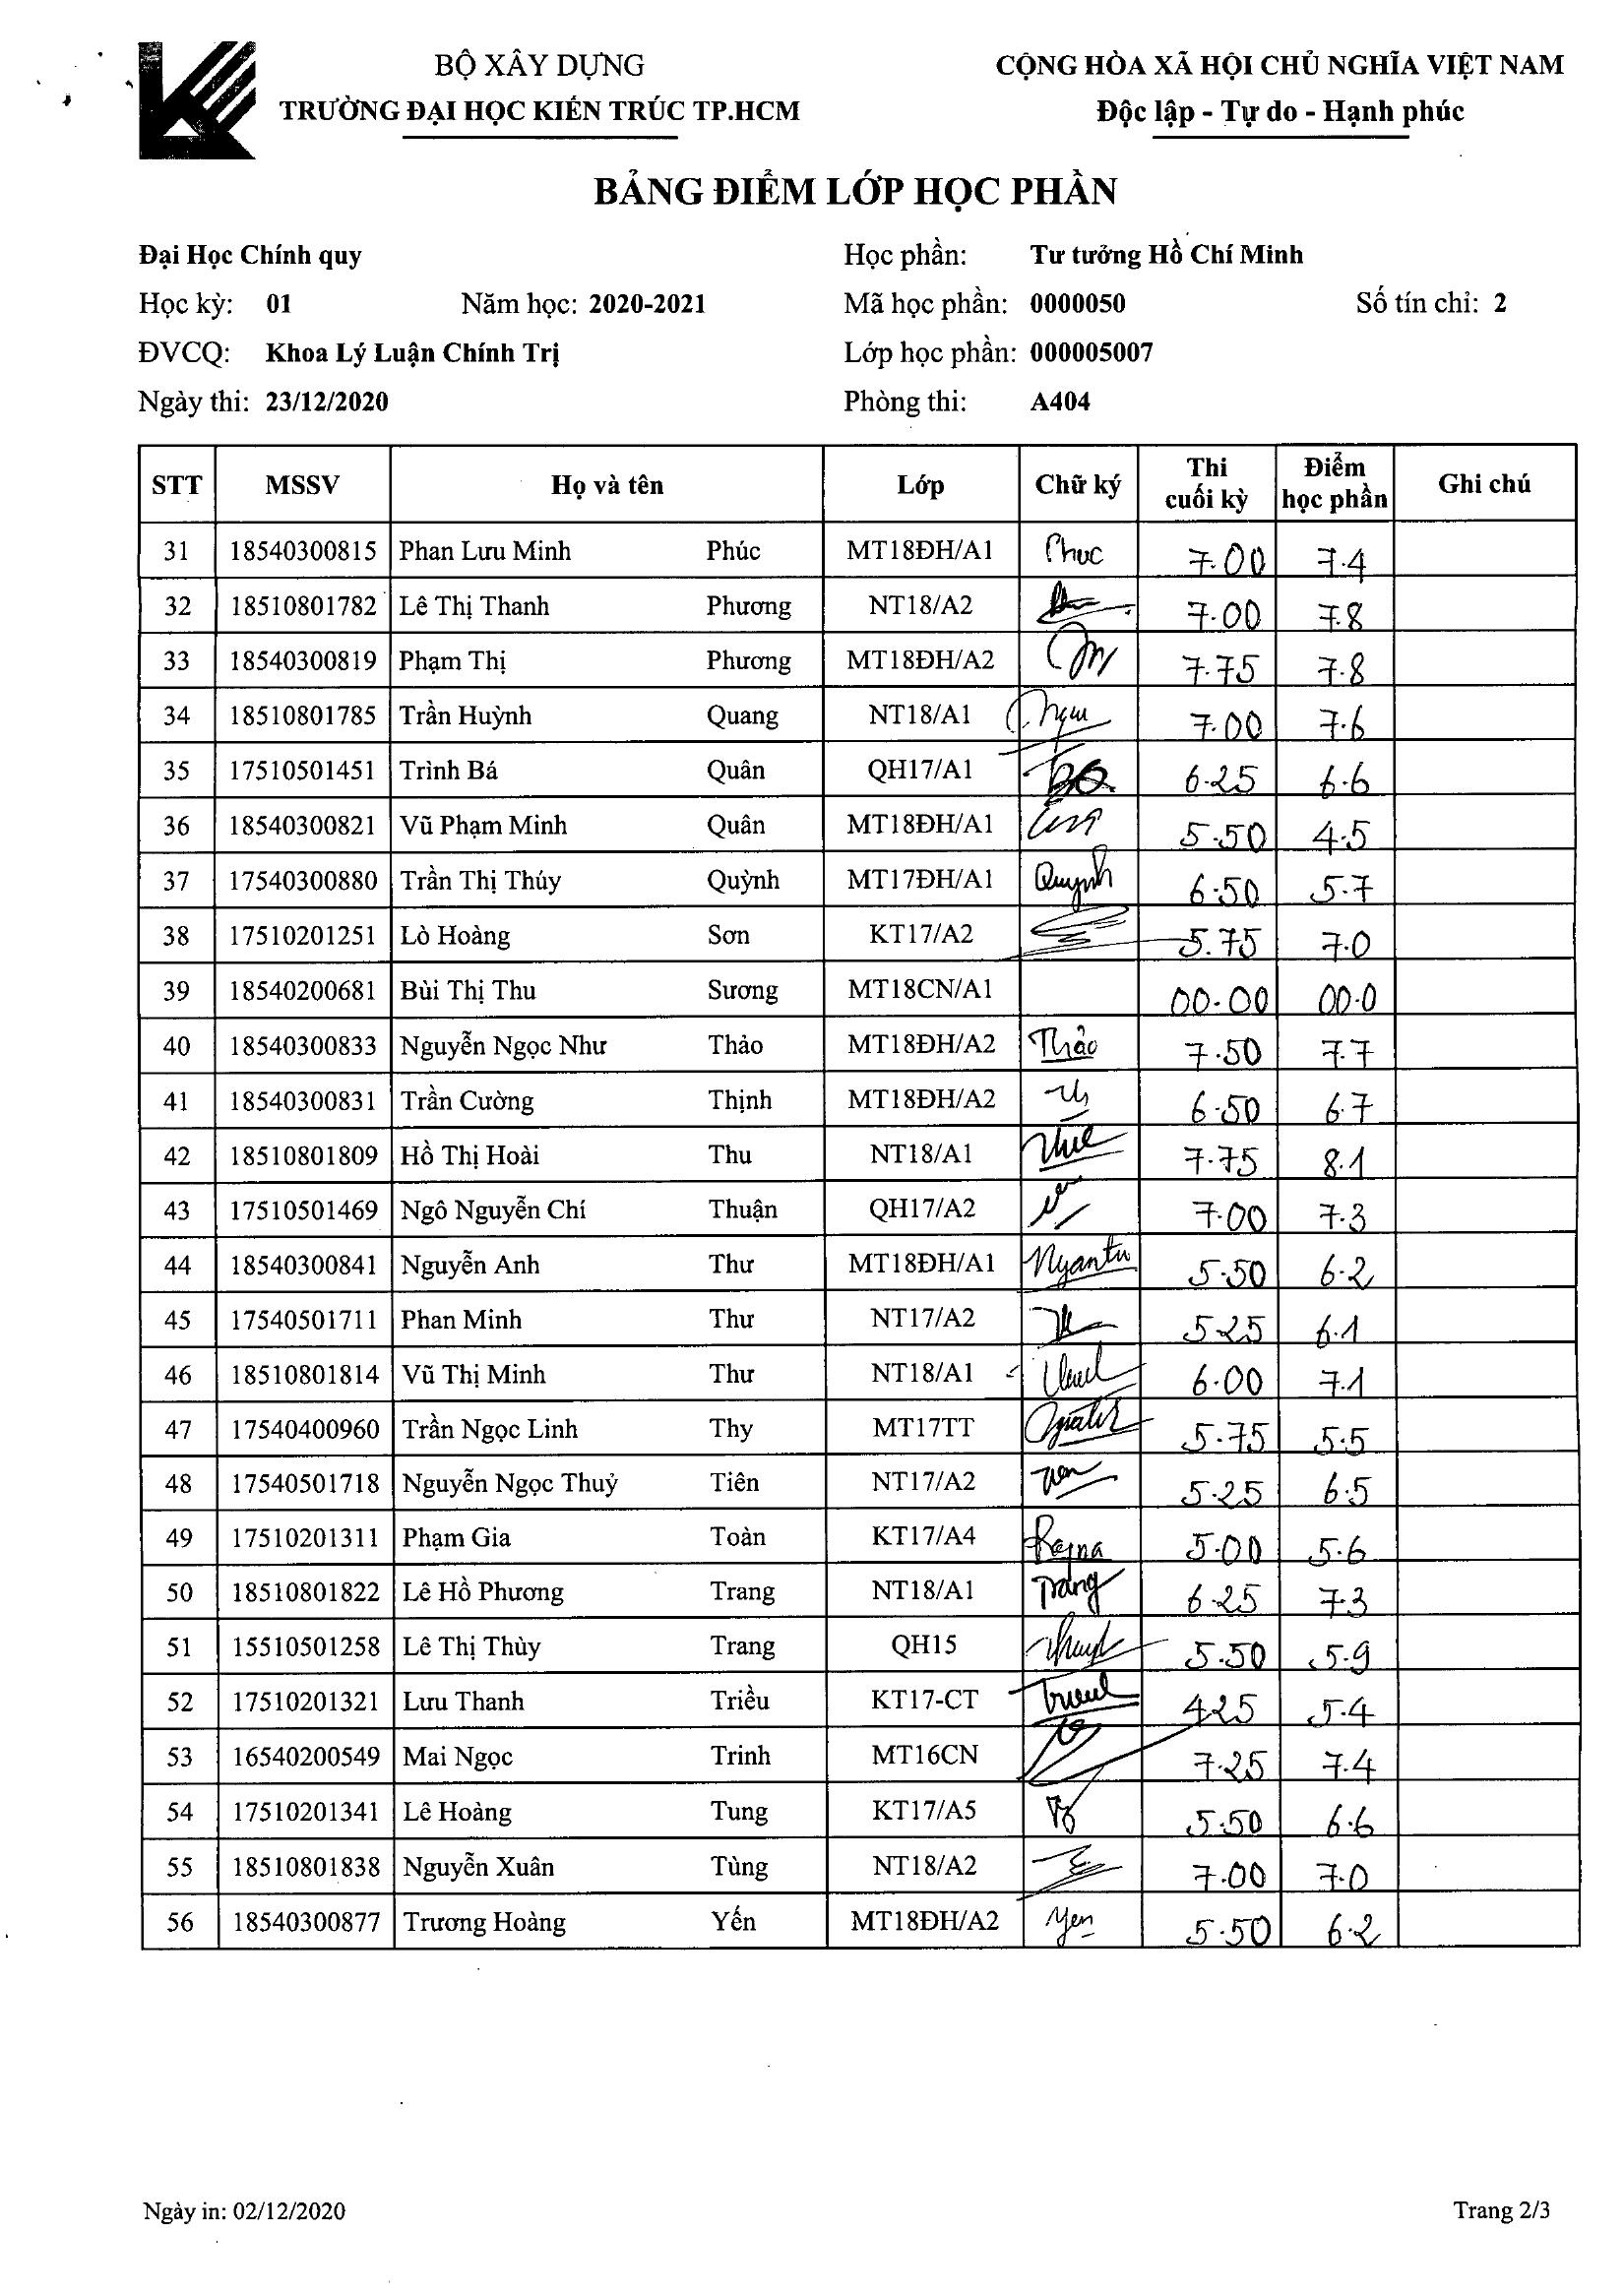 BỘ XÂY DỰNG
TRƯỜNG ĐẠI HỌC KIẾN TRÚC TP.HCM
CỘNG HÒA XÃ HỘI CHỦ NGHĨA VIỆT NAM
Độc lập - Tự do - Hạnh phúc
BẢNG ĐIỂM LỚP HỌC PHẦN
Đại Học Chính quy Học phần: Tư tưởng Hồ Chí Minh
Học kỳ: 01 Năm học: 2020-2021 Mã học phần: 0000050 Số tín chỉ: 2
ĐVCQ: Khoa Lý Luận Chính Trị Lớp học phần: 000005007
Ngày thi: 23/12/2020 Phòng thi: A404
STT MSSV Họ và tên Lớp Chữ ký Thi cuối kỳ Điểm học phần Ghi chú
31 18540300815 Phan Lưu Minh Phúc MT18ĐH/A1 Phuc 7.00 7.4
32 18510801782 Lê Thị Thanh Phương NT18/A2 7.00 7.8
33 18540300819 Phạm Thị Phương MT18ĐH/A2 7.75 7.8
34 18510801785 Trần Huỳnh Quang NT18/A1 7.00 7.6
35 17510501451 Trình Bá Quân QH17/A1 6.25 6.6
36 18540300821 Vũ Phạm Minh Quân MT18ĐH/A1 5.50 4.5
37 17540300880 Trần Thị Thúy Quỳnh MT17ĐH/A1 Quynh 6.50 5.7
38 17510201251 Lò Hoàng Sơn KT17/A2 5.75 7.0
39 18540200681 Bùi Thị Thu Sương MT18CN/A1 00.00 00.0
40 18540300833 Nguyễn Ngọc Như Thảo MT18ĐH/A2 Thảo 7.50 7.7
41 18540300831 Trần Cường Thịnh MT18ĐH/A2 6.50 6.7
42 18510801809 Hồ Thị Hoài Thu NT18/A1 7.75 8.1
43 17510501469 Ngô Nguyễn Chí Thuận QH17/A2 7.00 7.3
44 18540300841 Nguyễn Anh Thư MT18ĐH/A1 5.50 6.2
45 17540501711 Phan Minh Thư NT17/A2 5.25 6.1
46 18510801814 Vũ Thị Minh Thư NT18/A1 6.00 7.1
47 17540400960 Trần Ngọc Linh Thy MT17TT 5.75 5.5
48 17540501718 Nguyễn Ngọc Thuỷ Tiên NT17/A2 5.25 6.5
49 17510201311 Phạm Gia Toàn KT17/A4 5.00 5.6
50 18510801822 Lê Hồ Phương Trang NT18/A1 Trang 6.25 7.3
51 15510501258 Lê Thị Thùy Trang QH15 5.50 5.9
52 17510201321 Lưu Thanh Triều KT17-CT 4.25 5.4
53 16540200549 Mai Ngọc Trinh MT16CN 7.25 7.4
54 17510201341 Lê Hoàng Tung KT17/A5 5.50 6.6
55 18510801838 Nguyễn Xuân Tùng NT18/A2 7.00 7.0
56 18540300877 Trương Hoàng Yến MT18ĐH/A2 Yen 5.50 6.2
Ngày in: 02/12/2020 Trang 2/3